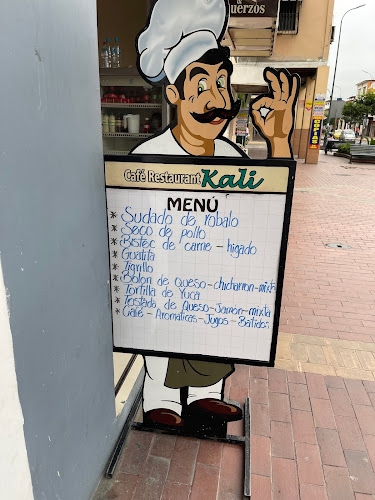 & 
uerzos
COPIAS
Café Restaurant Kali
MENÚ
* Sudado de robalo
* Seco de pollo
* Bistec de carne - higado
* Guatita
* Tigrillo
* Bolon de queso - chicharron - mixto
* Tortilla de Yuca
* Tostada de Queso - Jamon - mixta
* Café - Aromaticas - Jugos - Batidos